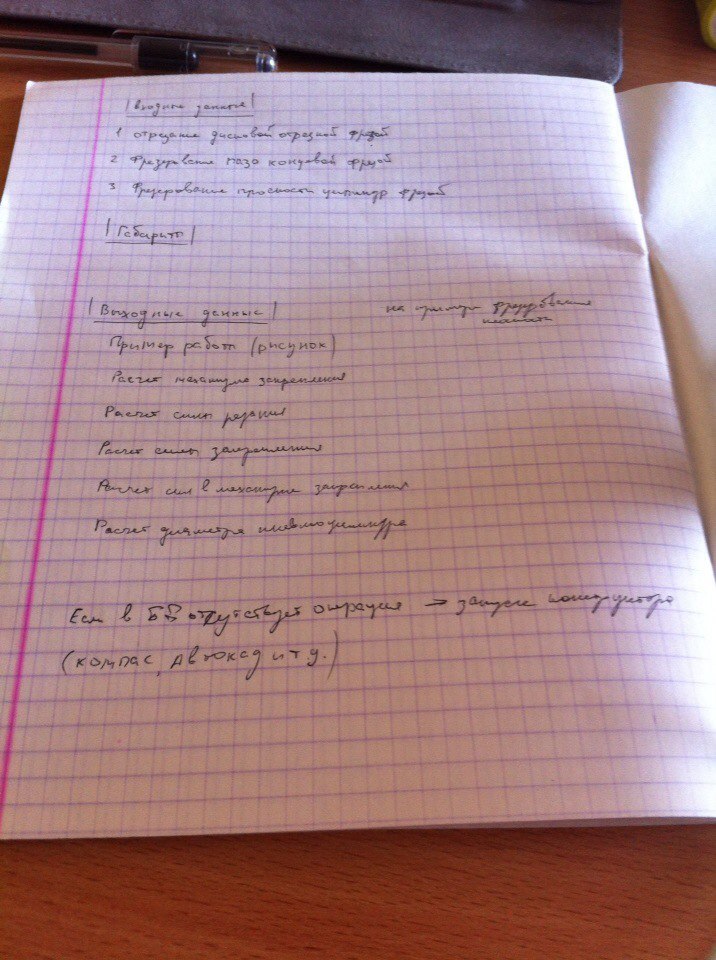 Входные данные
1 отрезание дисковой отрезной фрезой
2 Фрезерование паза концевой фрезой
3 Фрезерование плоскости цилиндр фрезой
Габариты
Выходные данные
на примере фрезерования
Пример работы (рисунок)
Расчет механизма закрепления
Расчет силы резания
Расчет силы закрепления
Расчет сил в механизме закрепления
Расчет диаметра пневмоцилиндра
Если в БД отсутствует операция → запуск
(компас, автокад и т д.)